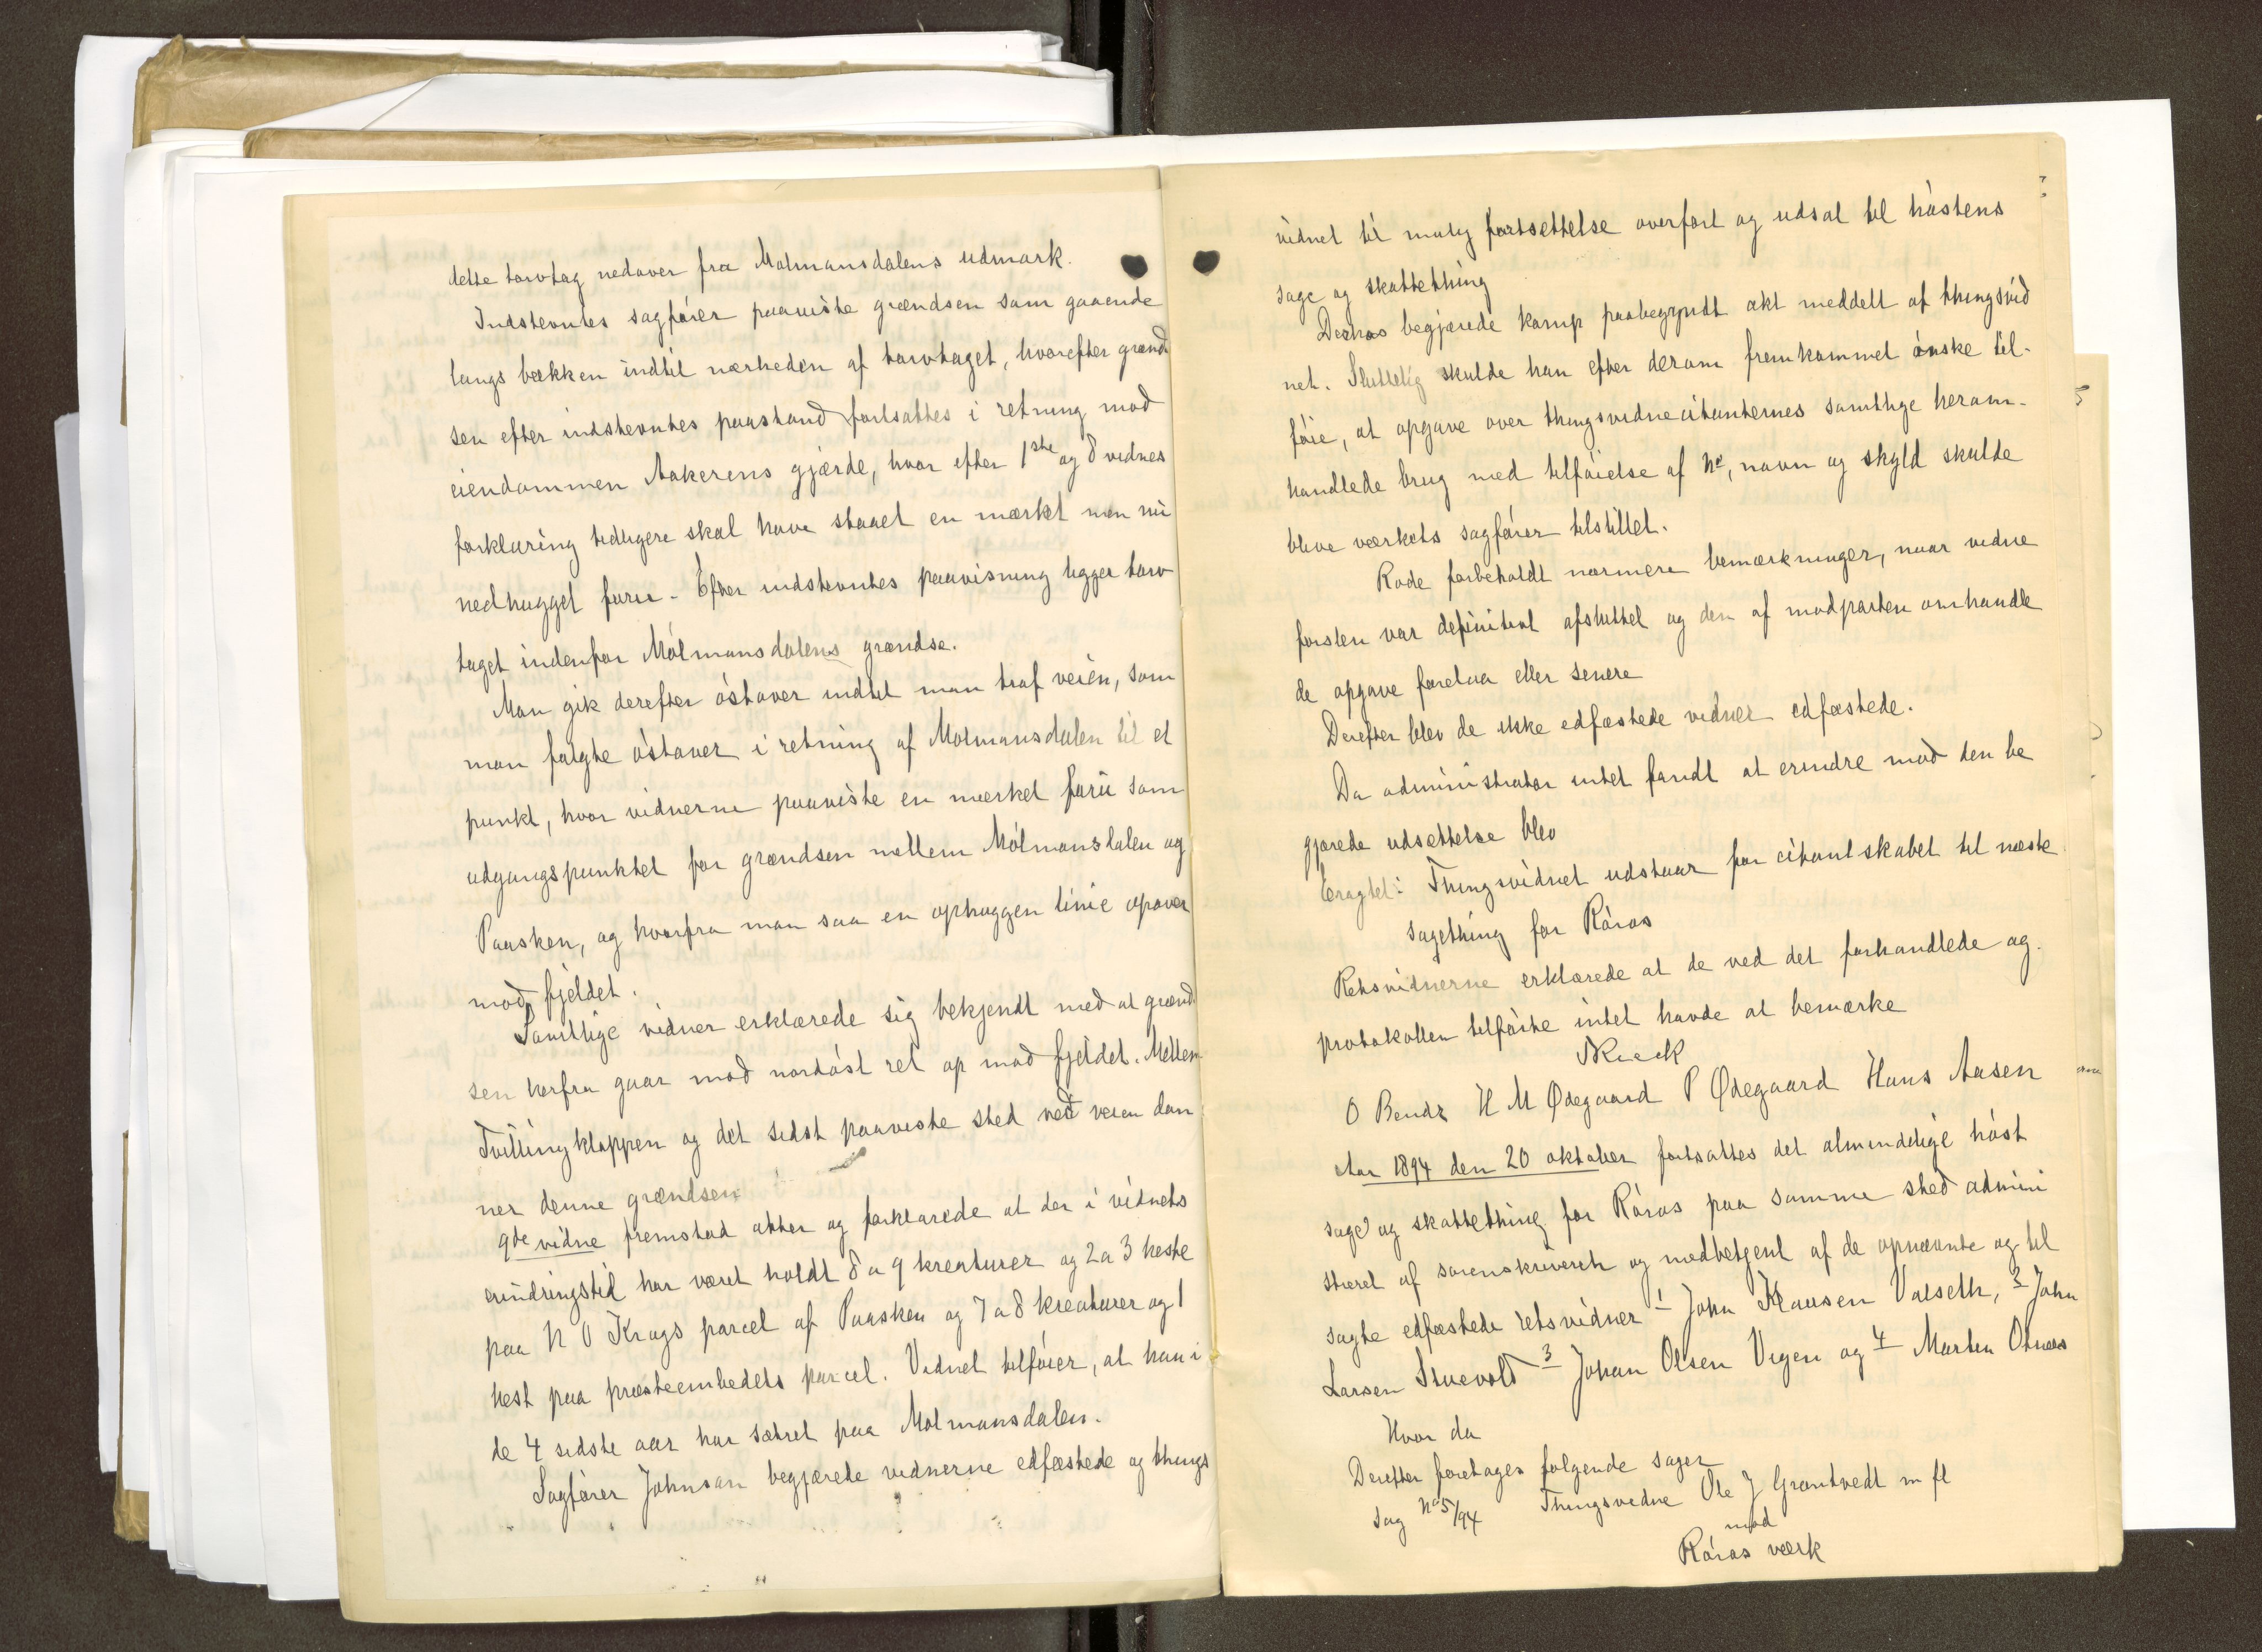 dette torvtag nedover fra Molmansdalens udmark.
Indstevntes sagfører paaviste grændsen som gaaende
langs bækken indtil nærheden af torvtaget, hvorefter grænd
sen efter indstevntes paastand fortsattes i retning mod
eiendommen Aakerens gjærde, hvor efter 1ste og 8 vidnes
forklaring tidligere skal have staaet en mærket men nu
nedhugget furu - Efter indstevntes paavisning ligger torv
taget indenfor Mólmansdalens grændse.
Man gik derefter óstover indtil man traf veien, som
man fulgte óstover i retning af Molmansdalen til et
punkt, hvor vidnerne paaviste en mærket furu som
udgangspunktet for grændsen mellem Mólmansdalen og
Paasken, og hvorfra man saa en ophuggen linie opover
mod fjeldet.
Samtlige vidner erklærede sig bekjendt med at grænd
sen herfra gaar mod nordóst ret op mod fjeldet. Mellem
Tvillingkloppen og det sidst paaviste sted ved veien dan
ner denne grændsen
9de vidne fremstod atter og forklarede at der i vidnets
erindringstid har været holdt 8 a 9 kreaturer og 2 a 3 heste
paa N O Krogs parcel af Paasken og 7 a 8 kreaturer og 1
hest paa præsteembedets parcel. Vidnet tilfóier, at han i
de 4 sidste aar har sætret paa Molmansdalen.
Sagfórer Johnson begjærede vidnerne edfæstede og things
vidnet til mulig fortsettelse overfort og udsat til hóstens
sage og skattething
Deshos begjærede kamp paabegyndt akt meddelt af thingsvid
net. Sluttelig skulde han efter derom fremkommet ónske til-
fóie, at opgave over thingsvidnecitanternes samtlige herom-
handlede brug med tilfóielse af No, navn og skyld skulde
blive værkets sagfórer tilstillet.
Rode forbeholdt nærmere bemærkninger, naar vidne
forslen var definitivt afsluttet og den af modparten omhandle
de opgave forelaa eller senere
Derefter blev de ikke edfæstede vidner edfæstede.
Da administrator intet fandt at erindre mod den be
gjærede udsettelse blev
Eragtet: Thingsvidnet udstaar for citantskabet til næste
sagething for Róros
Retsvidnerne erklærede at de ved det forhandlede og
protokollen tilfórte intet havde at bemærke
O Bendz H M Ødegaard P Ødegaard Hans Aasen
Aar 1894 den 20 oktober fortsattes det almindelige hóst
sage og skattething for Róros paa samme sted admini
streret af sorenskriveren og medbetjent af de opnævnte og til
sagte edfæstede retsvidner 1 John Klausen Valseth, 2 John
Larsen Stuevold 3 Johan Olsen Vigen og 4 Morten Otnæs
Hvor da
Derefter foretages fólgende sager
Sag No 5/94 Thingsvidne Ole J Grøntvedt m fl
mod
Róros værk